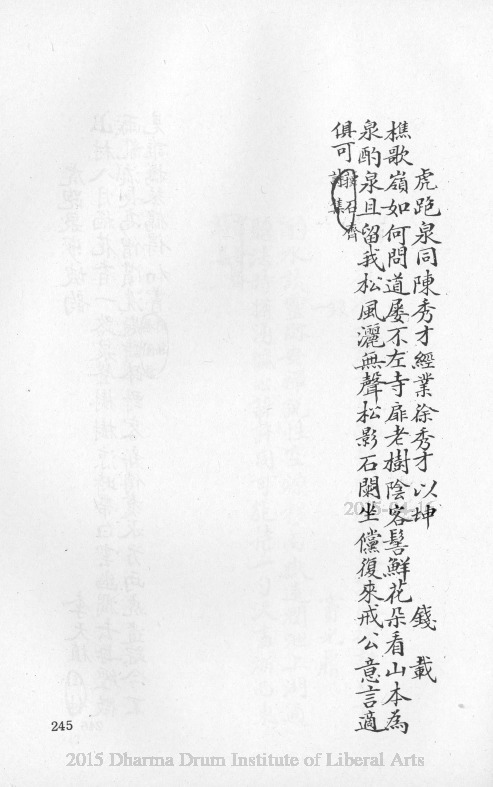 虎跑泉同陳秀才經業徐秀才以坤　錢載
樵歌嶺如何問道屡不左寺扉老樹陰客髻鮮花朵看山本為
泉酌泉且留我松風灑無聲松影石闌坐儻復來戒公意言適
俱可
石齋
集
245
2015 Dharma Drum Institute of Liberal Arts